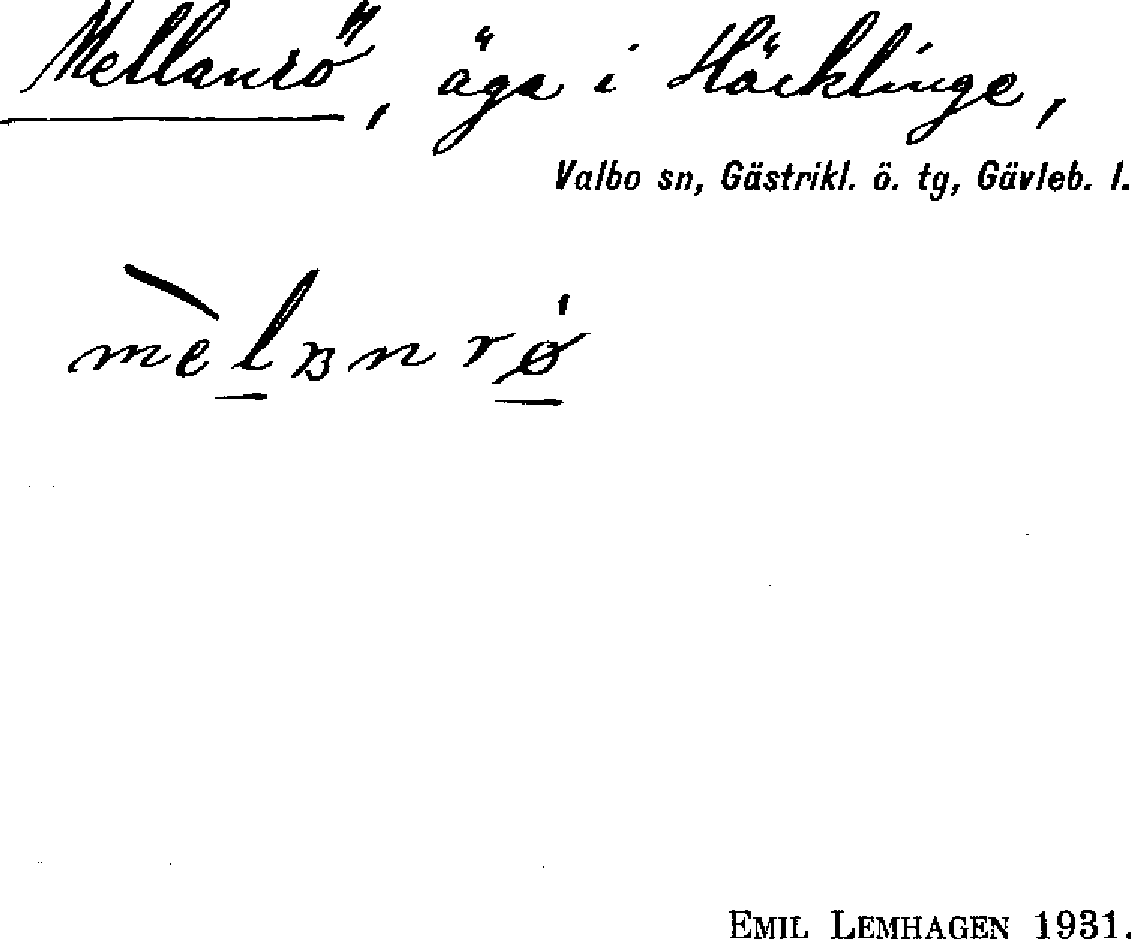 Mellanrö, äga i Häcklinge,
Valbo sn, Gästrikl. ö. tg, Gävleb. l.
mèlαnrǿ
EMIL LEMHAGEN 1931.